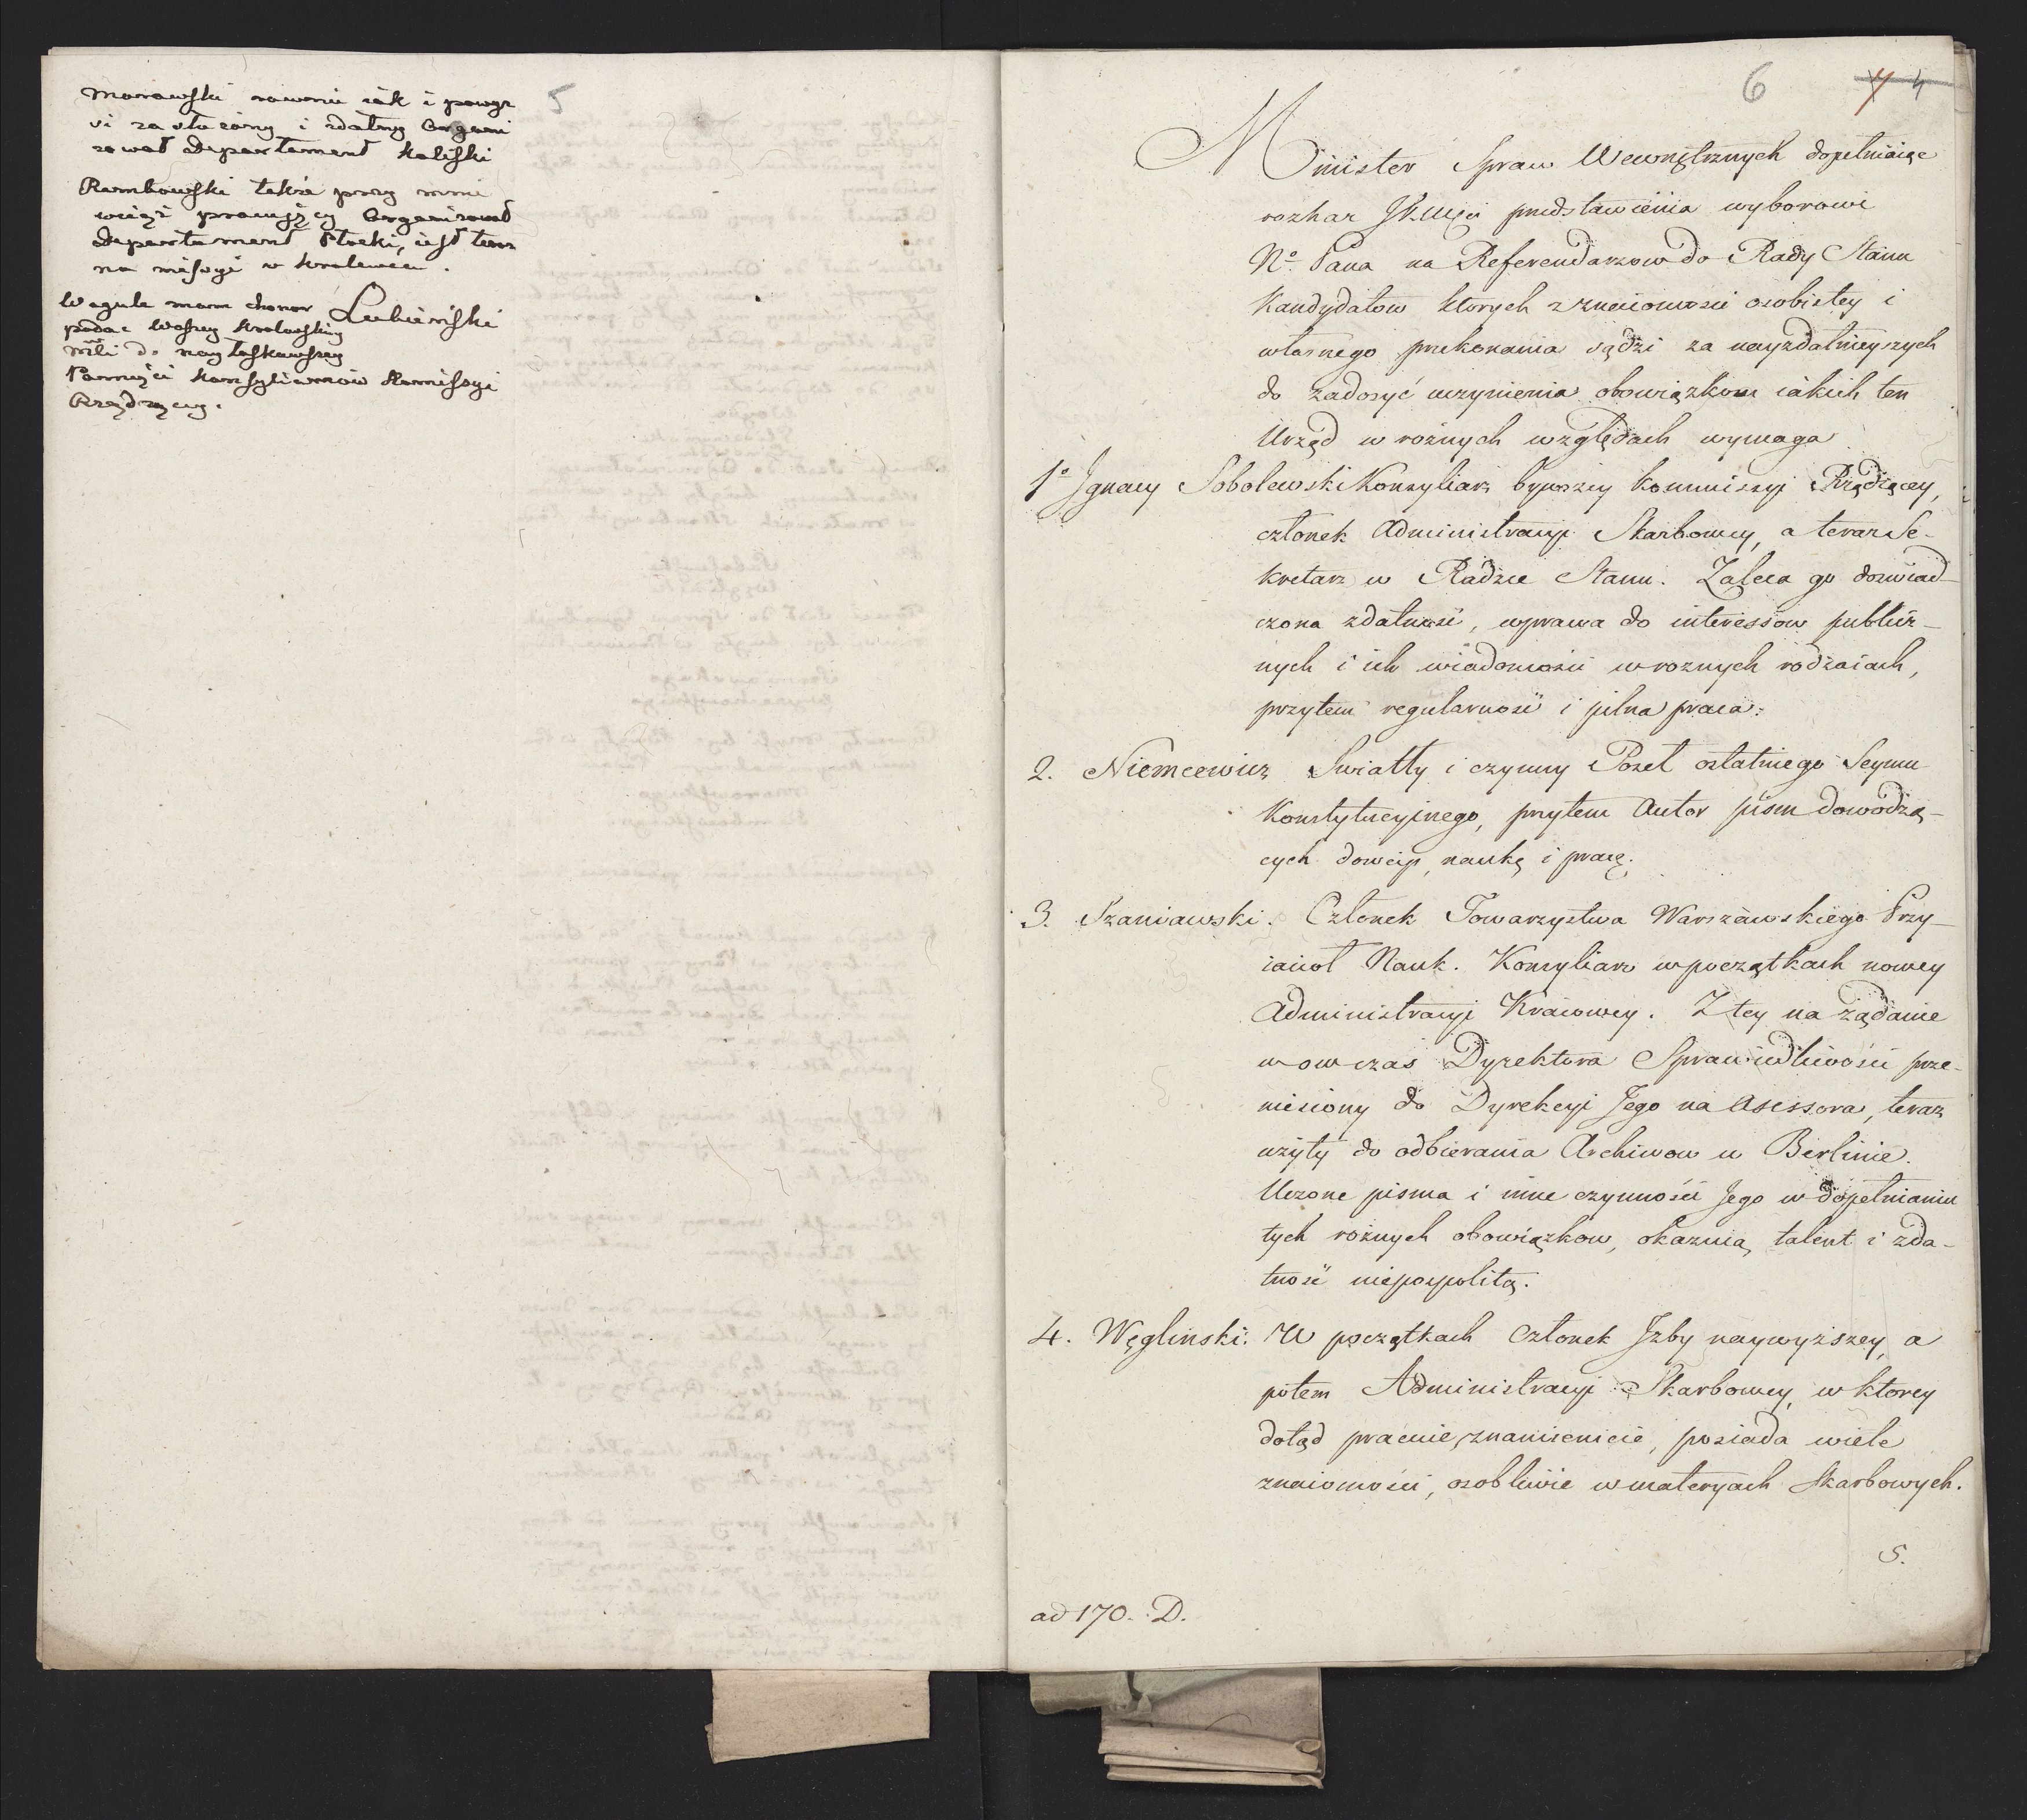 5
Morawski rownie iák i powyz
si zasłużony i zdatny Organi
zował Departament Kaliski
Rembowski także przy mnie
wciąż pracuiący Organizował
Departament Płocki, iest teraz
na missyi w Krolewcu.
W ogule mam chonor Lubieński
podac Waszey Krolewskiey
Mści do nayłaskawszey
Pamięci Konsyliarzów Kommissyi
Rządzącey.
6 7 4
Minister Spraw Wewnętrznych dopełniaiąc
rozkaz JKMCi przedstawienia wyborowi
No. Pana na Referendarzow do Rady Stanu
Kandydatow ktorych z znaiomosci osobistey i
własnego przekonania sądzi za nayzdatnieyszych
do zadosyć uczynienia obowiązkom iákich ten
Urząd w rożnych względach wymaga
1o Jgnacy Sobolewski Konsyliarz bywszey Kommissyi Rządzącey,
członek Administracyi Skarbowey, a teraz Se-
kretarz w Radzie Stanu. Zaleca go doswiad-
czona zdatność, wprawa do interessow publicz-
nych i ich wiadomości w roznych rodzaiach,
przytem regularność i pilna praca.
2. Niemcewicz Swiatły i czynny Poseł ostatniego Seymu
Konstytucyjnego, przytem Autor pism dowodzą-
cych dowcip, naukę i pracę.
3. Szaniawski. Członek Towarzystwa Warszawskiego Przy-
iaciół Nauk. Konsyliarz w początkach nowey
Administracyi Kraiowey. Z tey na żądanie
wowczas Dyrektora Sprawiedliwości prze-
niesiony do Dyrekcyi Jego na Asessora, teraz
użyty do odbierania Archiwow w Berlinie.
Uczone pisma i inne czynności Jego w dopełnianiu
tych rożnych obowiązkow, okazuią talent i zda-
tność niepospolitą.
4. Węglinski. W początkach Członek Jzby naywyższey, a
potem Administracyi Skarbowey, w ktorey
dotąd pracuie, znamienicie, posiada wiele
znaiomości, osobliwie w materyach Skarbowych.
5.
ad 170. D.